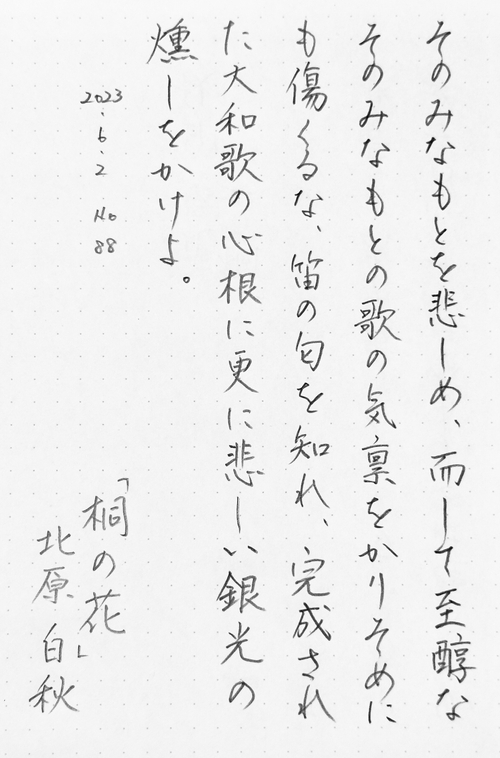 そのみなもとを悲しめ、而して至醇な
そのみなもとの歌の気禀をかりそめに
も傷くるな、笛の匂を知れ、完成され
た大和歌の心根に更に悲しい銀光の
燻しをかけよ。
2023.6.2 No 88
「桐の花」
北原白秋